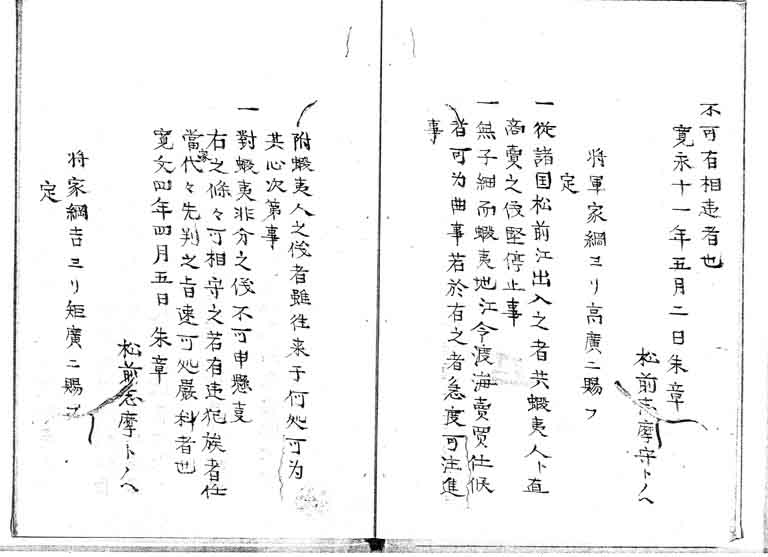 不可有相違者也
寛永十一年五月二日朱章
松前志摩守トノヘ
将軍家綱ヨリ高廣ニ賜フ
定
一從諸国松前江出入之者共蝦夷人ト直
商賣之儀堅停止事
一無子細而蝦夷地江令渡海賣買仕候
者可为曲事若於有之者急度可注進
事
附蝦夷人之儀者雖往来于何処可为
其心次第事
一對蝦夷非分之儀不可申懸事
右之條々可相守之若有违犯族者任
當家代々先判之旨速可処嚴科者也
寛文四年四月五日朱章
松前志摩トノヘ
将家綱吉ヨリ矩廣ニ賜フ
定